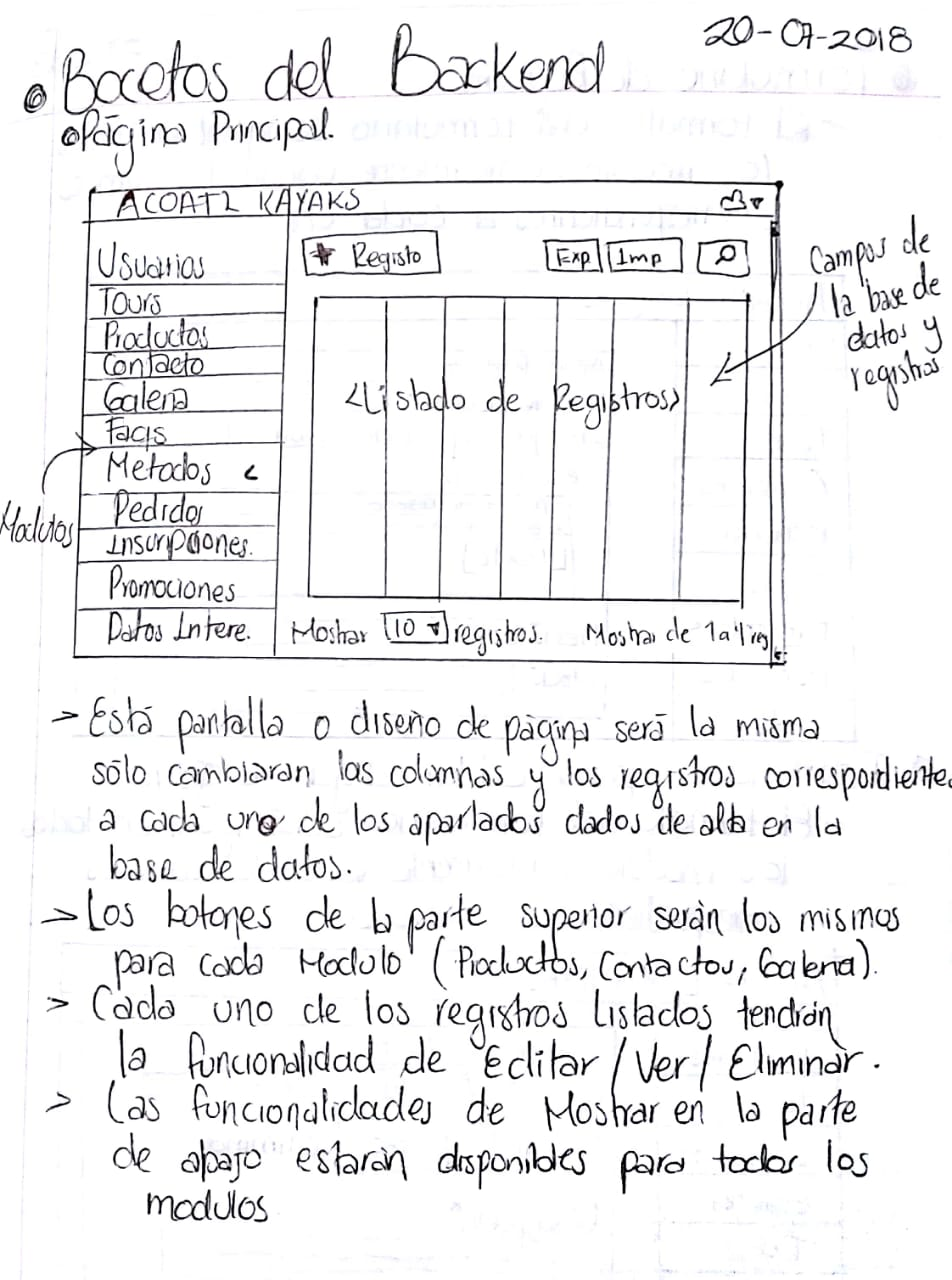 20-07-2018
Bocetos del Backend
Página Principal.
ACOATL KAYAKS
Usuarios
Tours
Productos
Contacto
Galeria
Faqs
Metodos <
Pedidos
Inscripciones.
Promociones
Datos Intere.
Modulos
+ Registo
Exp
Imp
<Listado de Registros>
Campos de
la base de
datos y
registros
Mostrar 10 registros.
Mostrar de 1 a
-> Está pantalla o diseño de página será la misma
sólo cambiaran las columnas y los registros correspondientes
a cada uno de los apartados dados de alta en la
base de datos.
-> Los botones de la parte superior serán los mismos
para cada Modulo (Productos, Contactos, Galeria).
> Cada uno de los registros Listados tendrán
la funcionalidad de Editar / Ver / Eliminar.
> Las funcionalidades de Mostrar en la parte
de abajo estarán disponibles para todos los
modulos